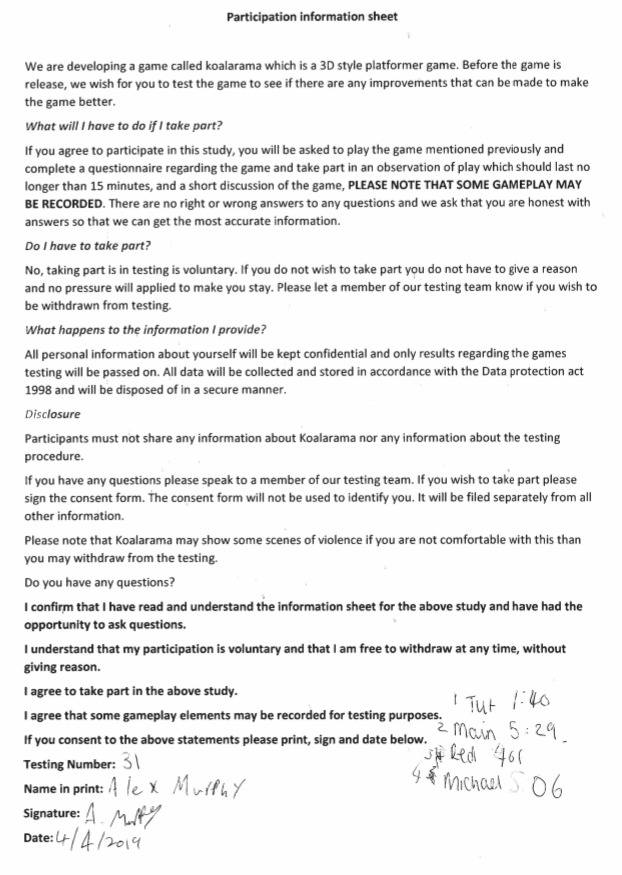 Participation information sheet
We are developing a game called koalarama which is a 3D style platformer game. Before the game is
release, we wish for you to test the game to see if there are any improvements that can be made to make
the game better.
What will I have to do if I take part?
If you agree to participate in this study, you will be asked to play the game mentioned previously and
complete a questionnaire regarding the game and take part in an observation of play which should last no
longer than 15 minutes, and a short discussion of the game, PLEASE NOTE THAT SOME GAMEPLAY MAY
BE RECORDED. There are no right or wrong answers to any questions and we ask that you are honest with
answers so that we can get the most accurate information.
Do I have to take part?
No, taking part is in testing is voluntary. If you do not wish to take part you do not have to give a reason
and no pressure will applied to make you stay. Please let a member of our testing team know if you wish to
be withdrawn from testing.
What happens to the information I provide?
All personal information about yourself will be kept confidential and only results regarding the games
testing will be passed on. All data will be collected and stored in accordance with the Data protection act
1998 and will be disposed of in a secure manner.
Disclosure
Participants must not share any information about Koalarama nor any information about the testing
procedure.
If you have any questions please speak to a member of our testing team. If you wish to take part please
sign the consent form. The consent form will not be used to identify you. It will be filed separately from all
other information.
Please note that Koalarama may show some scenes of violence if you are not comfortable with this than
you may withdraw from the testing.
Do you have any questions?
I confirm that I have read and understand the information sheet for the above study and have had the
opportunity to ask questions.
I understand that my participation is voluntary and that I am free to withdraw at any time, without
giving reason.
I agree to take part in the above study.
I agree that some gameplay elements may be recorded for testing purposes.
If you consent to the above statements please print, sign and date below.
1 Tut 1:40
2 Main 5:29
Red
4 Michael 06
Testing Number: 31
Name in print: Alex Murphy
Signature: A.
Date: 4/4/2019